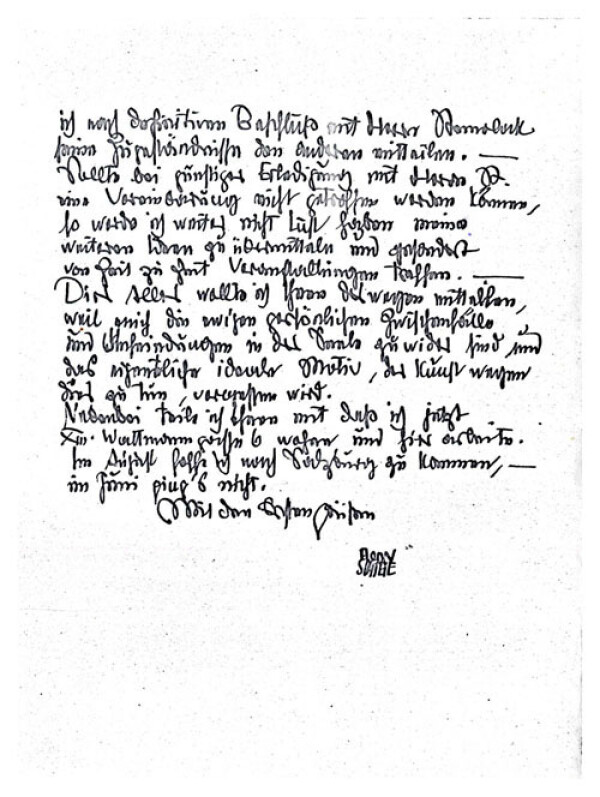 ich nach definitivem Beschluß mit Herrn
seine Zugeständnisse den anderen mitteilen. —
Sollte bei günstiger Erledigung mit Herrn St.
eine Vereinbarung nicht getroffen werden können,
so werde ich weiters nicht Lust haben meine
weiteren Ideen zu übermitteln und gesondert
von Zeit zu Zeit Veranstaltungen treffen. —
Dies alles wollte ich Ihnen deswegen mitteilen,
weil mich die ewigen persönlichen Zwischenfälle
und Anfeindungen in der Seele zu wider sind, und
das eigentliche ideale Motiv, der Kunst wegen
dies zu tun, vergessen wird.
Nebenbei teile ich Ihnen mit daß ich jetzt
XIII. Wattmanngasse 6 wohne und hier arbeite.
Im August hoffe ich nach Salzburg zu kommen, —
im Juni ging's nicht.
Mit den besten Grüßen